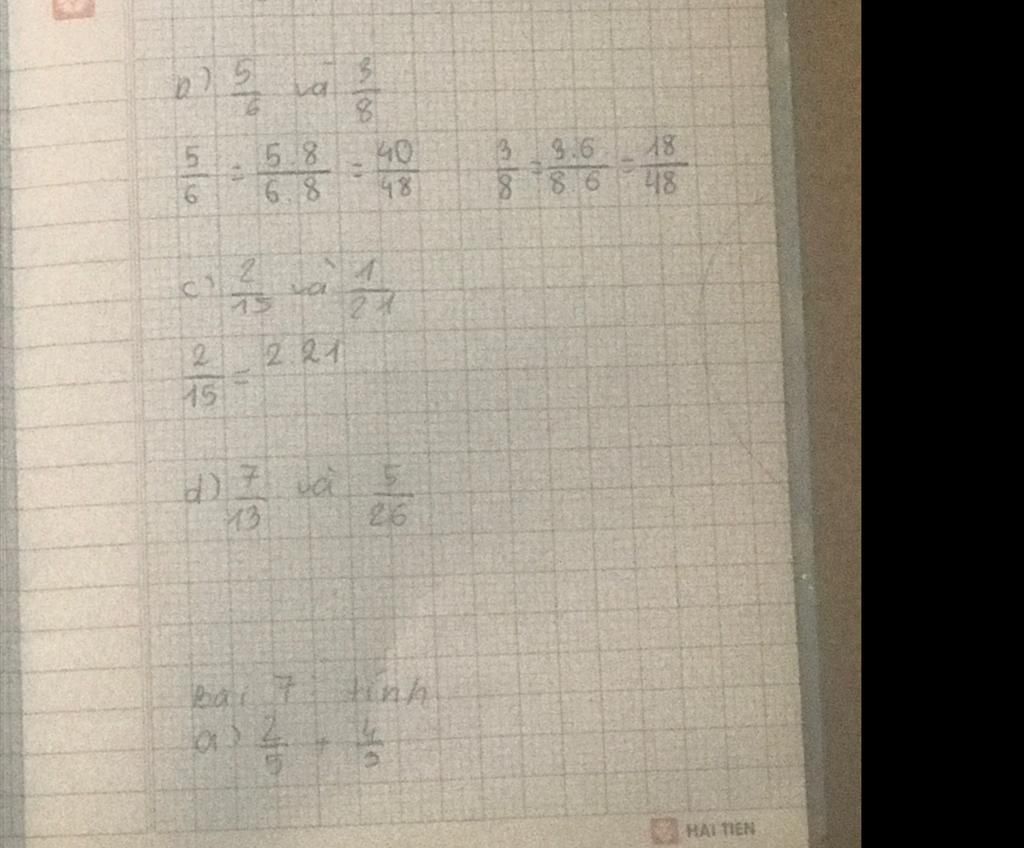 b) 5/6 và 3/8
5/6 = 5.8/6.8 = 40/48 3/8 = 3.6/8.6 = 18/48
c) 2/15 và 1/21
2/15 = 2.21
d) 7/13 và 5/26
Bài 7: tính
a) 2/5 + 4/5
HAI TIEN